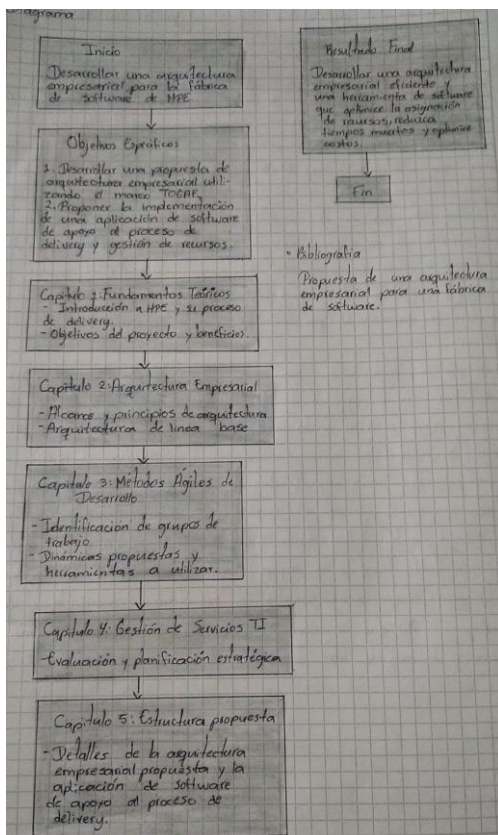 Diagrama
Inicio
Desarrollar una arquitectura
empresarial para la fábrica
de software de HPE
Objetivos Específicos
1. Desarrollar una propuesta de
arquitectura empresarial utili-
zando el marco TOGAF,
2. Proponer la implementación
de una aplicación de software
de apoyo al proceso de
delivery y gestión de recursos.
Capitulo 1: Fundamentos Teóricos
- Introducción a HPE y su proceso
de delivery.
- Objetivos del proyecto y beneficios.
Capitulo 2: Arquitectura Empresarial
- Alcance y principios de arquitectura
- Arquitectura de linea base
Capitulo 3: Métodos Ágiles de
Desarrollo
- Identificación de grupos de
trabajo.
- Dinámicas propuestas y
herramientas a utilizar.
Capitulo 4: Gestión de Servicios TI
- Evaluación y planificación estratégica
Capitulo 5: Estructura propuesta
- Detalles de la arquitectura
empresarial propuesta y la
aplicación de software
de apoyo al proceso de
delivery.
Resultado Final
Desarrollar una arquitectura
empresarial eficiente y
una herramienta de software
que optimice la asignación
de recursos, reduzca
tiempos muertos y optimice
costos.
Fin
• Bibliografia
Propuesta de una arquitectura
empresarial para una fábrica
de software.